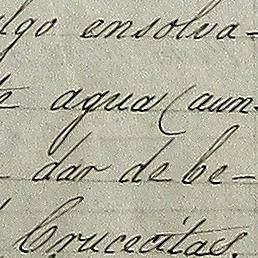 algo ensolva-
agua (aun-
dar de be-
Crucecitas,